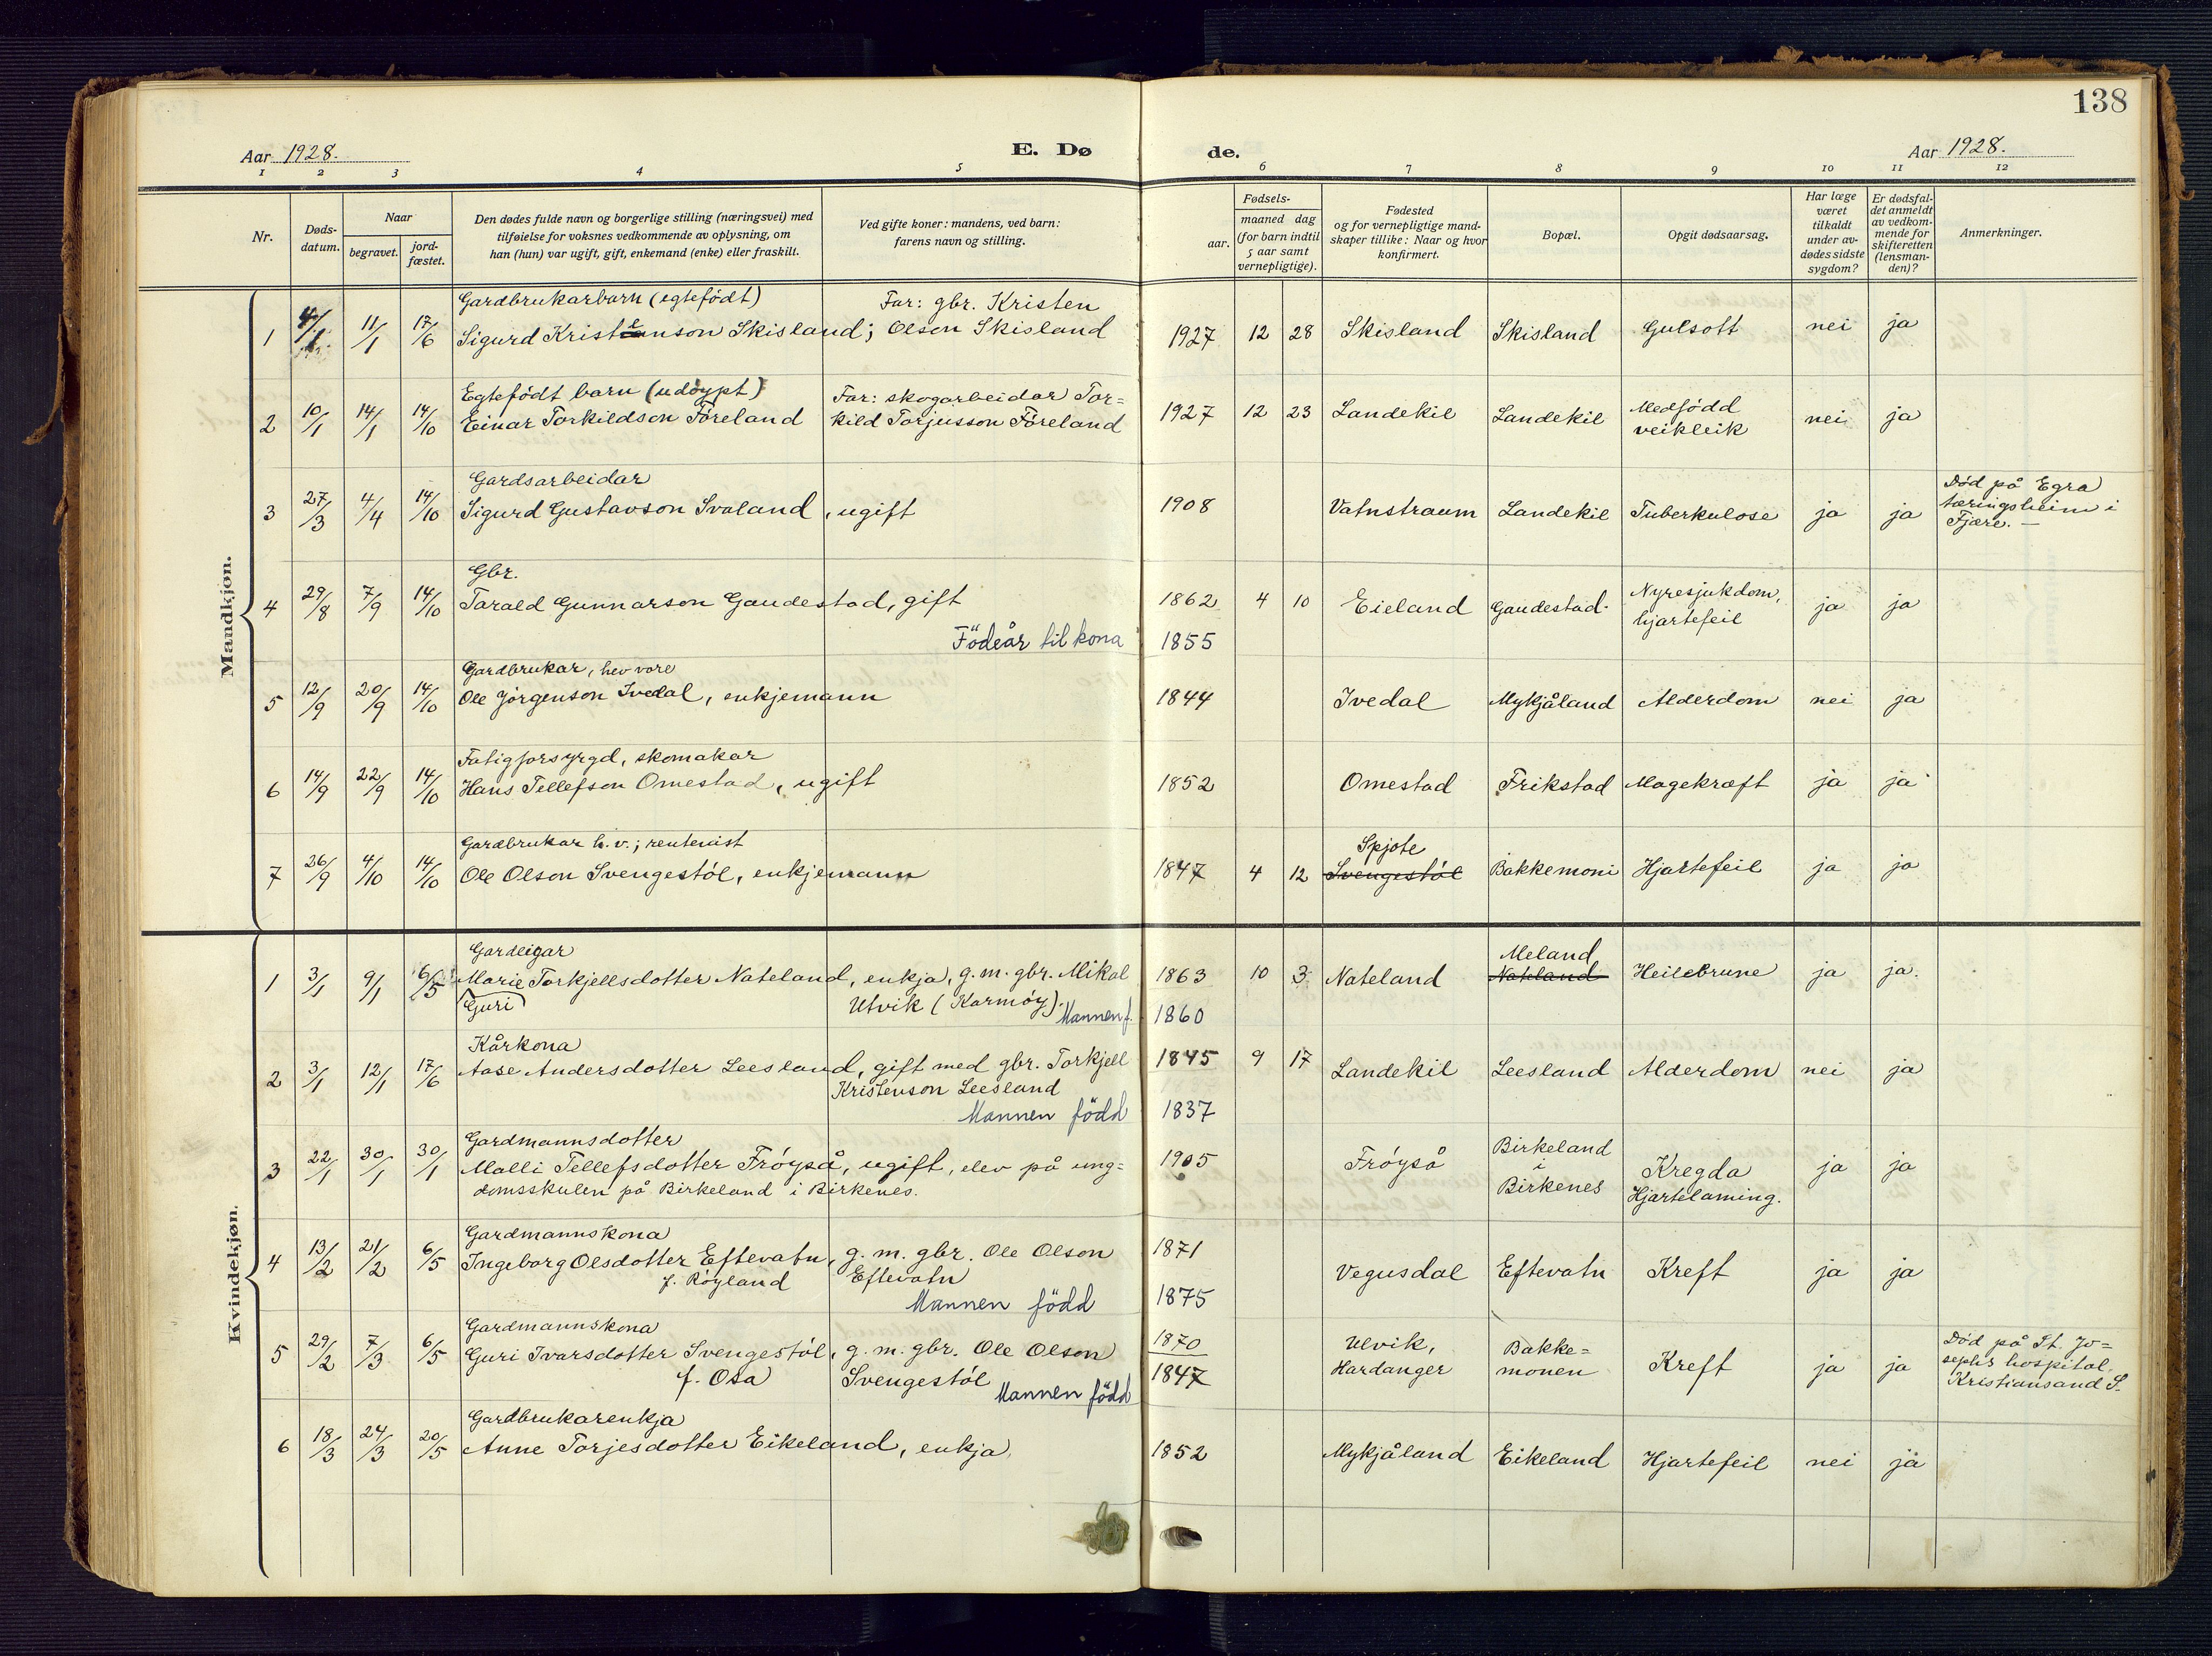 138
Aar 1928. E. Dø de. Aar 1928.
1 2 3 4 5 6 7 8 9 10 11 12
Nr.
Døds-
datum.
Naar
begravet.
jord-
fæstet.
Den dødes fulde navn og borgerlige stilling (næringsvei) med
tilføielse for voksnes vedkommende av oplysning, om
han (hun) var ugift, gift, enkemand (enke) eller fraskilt.
Ved gifte koner: mandens, ved barn:
farens navn og stilling.
Fødsels-
aar.
maaned dag
(for barn indtil
5 aar samt
vernepligtige).
Fødested
og for vernepligtige mand-
skaper tillike: Naar og hvor
konfirmert.
Bopæl.
Opgit dødsaarsag.
Har læge
været
tilkaldt
under av-
dødes sidste
sygdom?
Er dødsfal-
det anmeldt
av vedkom-
mende for
skifteretten
(lensman-
den)?
Anmerkninger.
Mandkjøn.
Gardbrukarbarn (egtefödt) Far: gbr. Kristen
1 4/1 11/1 17/6 Sigurd Kristenson Skisland; Olson Skisland 1927 12 28 Skisland Skisland Gulsott nei ja
Egtefödt barn (udöypt) Far: skogarbeidar Tor=
2 10/1 14/1 14/10 Einar Torkildson Föreland kild Torjusson Föreland 1927 12 23 Landekil Landekil Medfödd
veikleik nei ja
Gardsarbeidar
3 27/3 4/4 14/10 Sigurd Gustavson Svaland, ugift 1908 Vatnstraum Landekil Tuberkulose ja ja Död på Egra
tæringsheim i
Fjære. —
Gbr.
4 29/8 7/9 14/10 Tarald Gunnarson Gaudestad, gift 1862 4 10 Eieland Gaudestad. Nyresjukdom,
hjartefeil ja ja
Födeår til kona 1855
Gardbrukar, hev vore
5 12/9 20/9 14/10 Ole Jörgenson Ivedal, enkjemann 1844 Ivedal Mykjåland Alderdom nei ja
Fatigforsyrgd, skomakar
6 14/9 22/9 14/10 Hans Tellefson Omestad, ugift 1852 Omestad Frikstad Magekræft ja ja
Gardbrukar h.v.; rentenist Spjote
7 26/9 4/10 14/10 Ole Olson Svengestöl, enkjemann 1847 4 12 Svengestöl Bakkemoni Hjartefeil ja ja
Kvindekjøn.
Gardeigar Meland
1 3/1 9/1 6/5 Marie Torkjellsdotter Nateland, enkja, g.m. gbr. Mikal 1863 10 3 Nateland Nateland Heilebrune ja ja.
(Guri) Utvik (Karmöy). Mannen f. 1860
Kårkona
2 3/1 12/1 17/6 Aase Andersdotter Leesland, gift med gbr. Torkjell 1845 9 17 Landekil Leesland Alderdom nei ja
Kristenson Leesland
Mannen född 1837
Gardmannsdotter
3 22/1 30/1 30/1 Malli Tellefsdotter Fröyså, ugift, elev på ung= 1905 Fröyså Birkeland
i
Birkenes Kregda
Hjartelaming. ja ja
domsskulen på Birkeland i Birkenes.
Gardmannskona
4 13/2 21/2 6/5 Ingeborg Olsdotter Eftevatn, g. m. gbr. Ole Olson 1871 Vegusdal Eftevatn Kreft ja ja
f. Röyland Eftevatn
Mannen född 1875
Gardmannskona
5 29/2 7/3 6/5 Guri Ivarsdotter Svengestöl, g. m. gbr. Ole Olson 1870 Ulvik,
Hardanger Bakke=
monen Kreft ja ja Död på St. Jo=
sephs hospital
Kristiansand S.
f. Osa Svengestöl Mannen född 1847
Gardbrukarenkja
6 18/3 24/3 20/5 Anne Torjesdotter Eikeland, enkja, 1852 Mykjåland Eikeland Hjartefeil nei ja